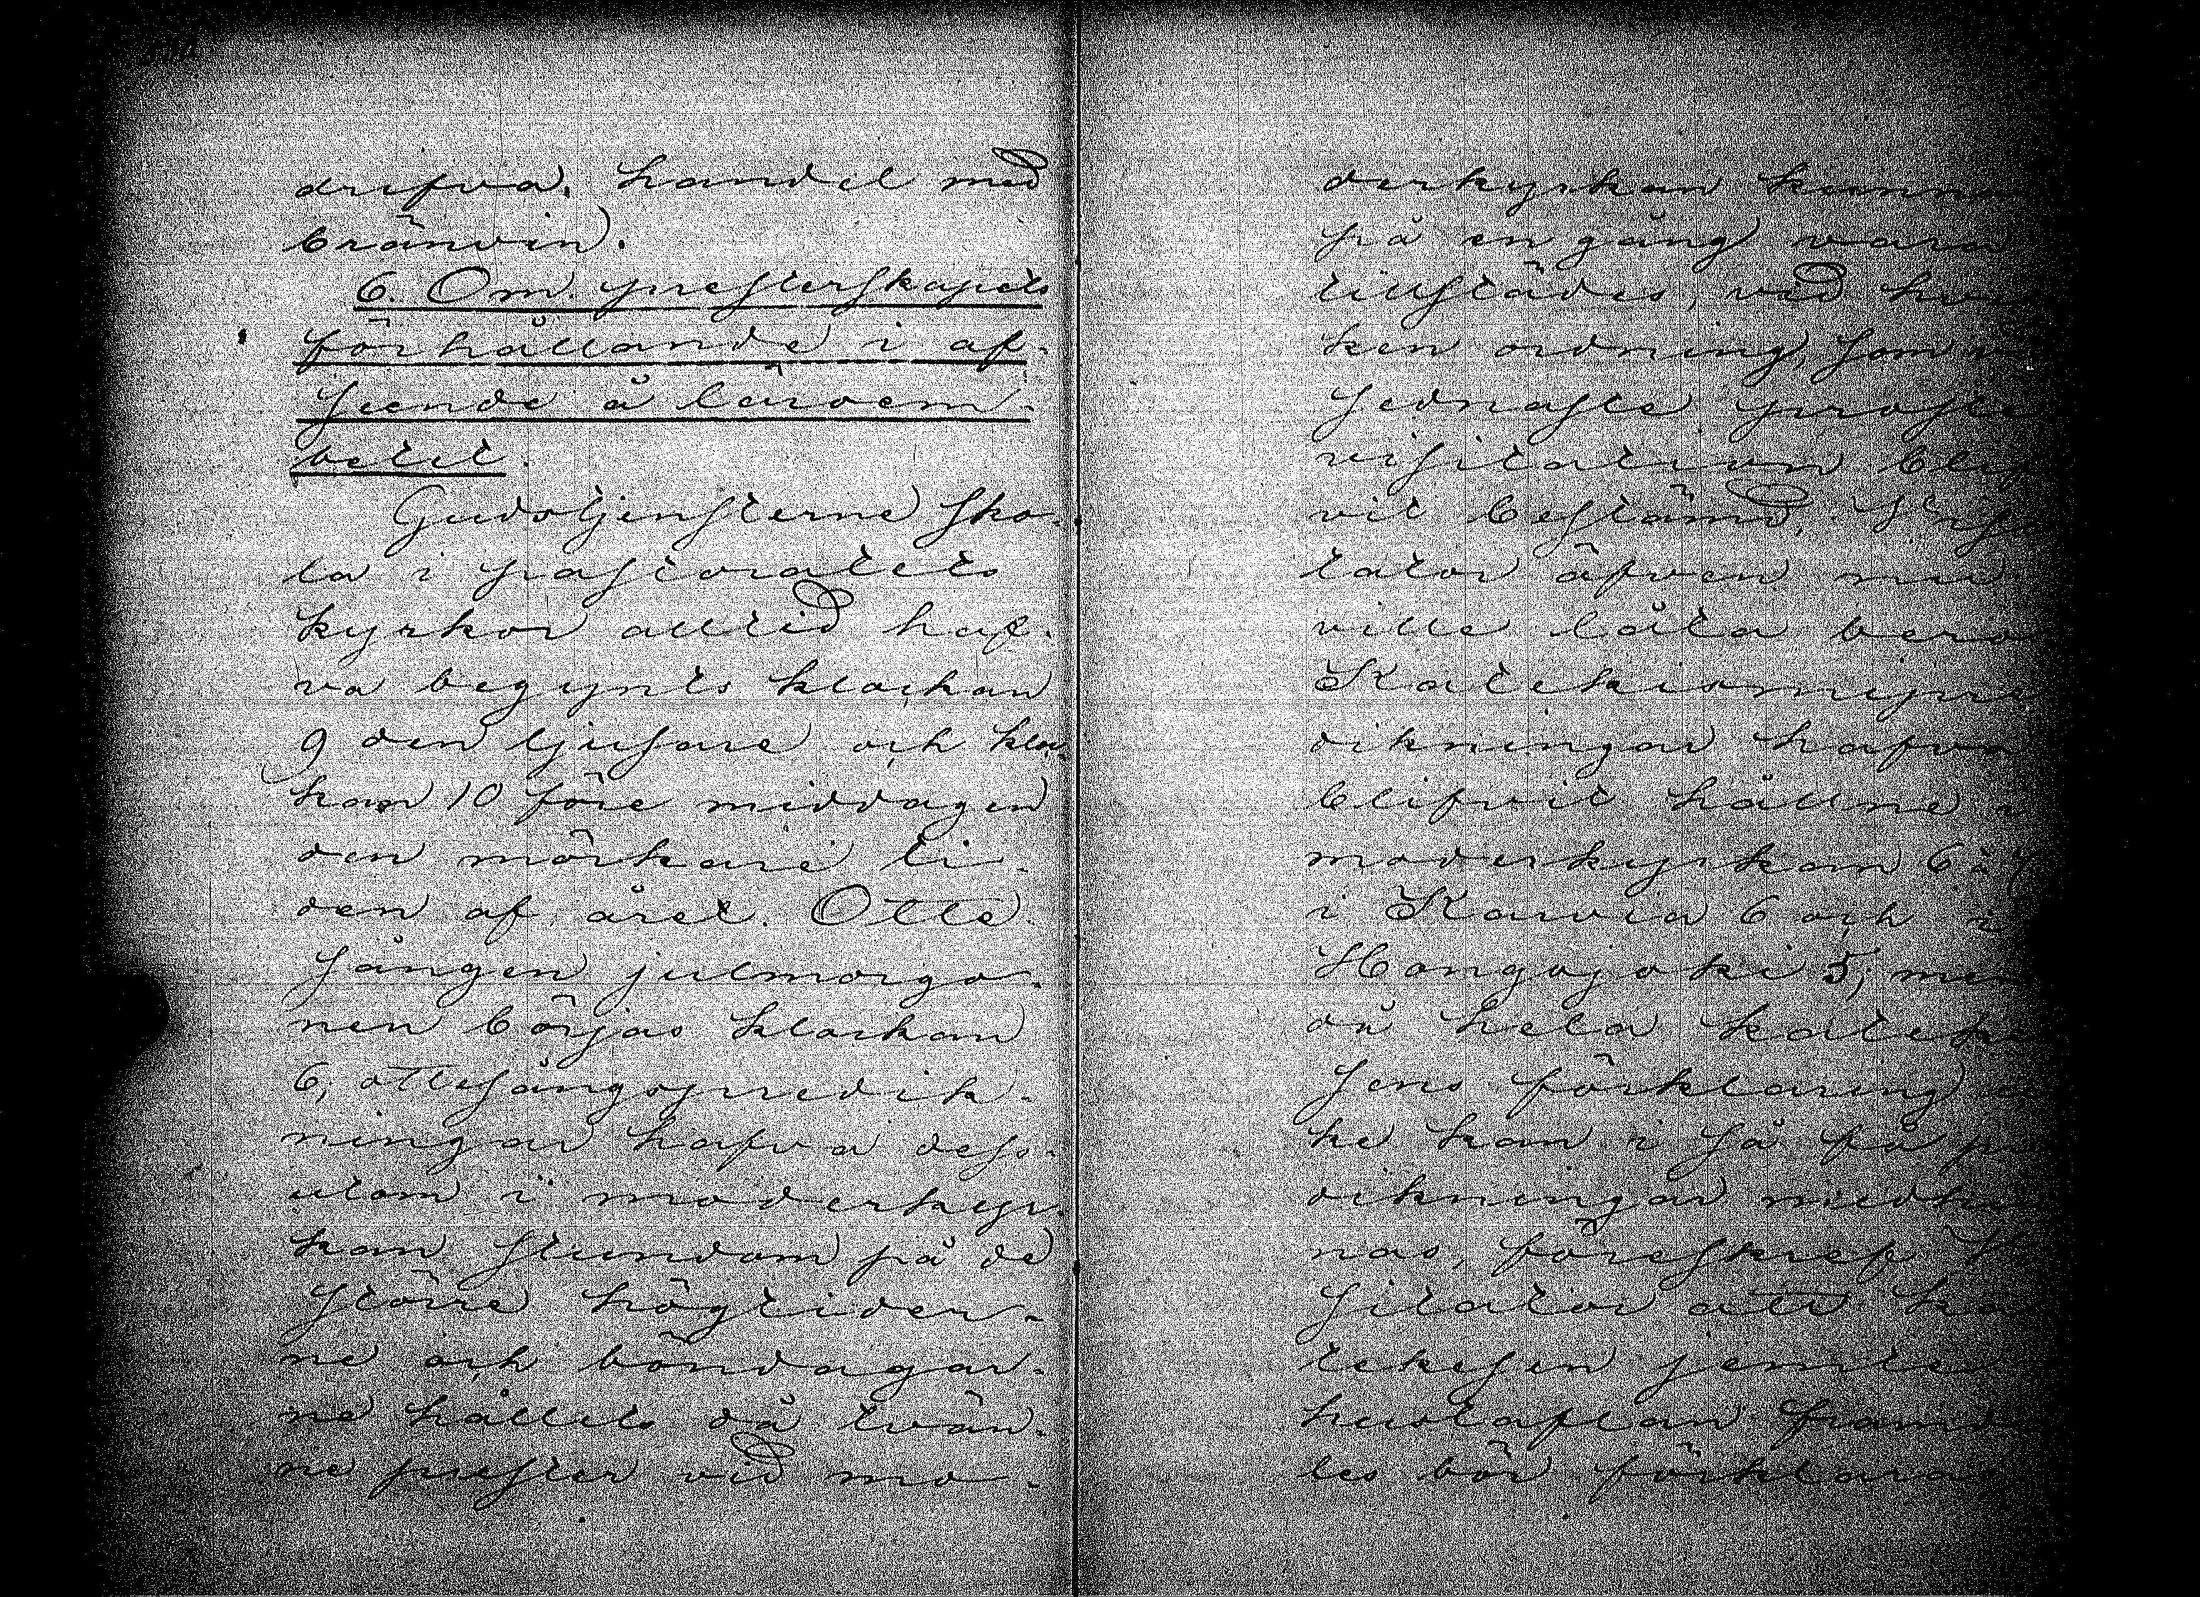 drifva handel med
bränvin).
6. Om presterskapets
förhållande i af-
seende å läroem-
betet.
Gudstjensterne sko-
la i pastoratets
kyrkor alltid haf-
va begynts klockan
9 den ljusare och kloc-
kan 10 före middagen
den mörkare ti-
den af året. Otte
sången julmorgo-
nen börjas klockan
6; ottesångspredik-
ningar hafva dess-
utom i moderkyr-
kan stundom på de
större högtider-
ne och böndagar-
ne hållits då tvän-
ne prester vid mo-
derkyrkan kunna
på en gång vara
tillstädes, vid
ken ordning, som
sednaste proste
visitation
vit bestämd,
tator äfven
ville låta bero
Katekismipre
dikningar hafva
blifvit hållne i
moderkyrkan 6 à 7
i Karvia 6 och i
Hongojoki 5; men
då hela katek
sens förklaring
ke kan i så få
dikningar
nas, föreskref
sitator att ka
tekesen jemte
hustaflan framde
les bör förklaras